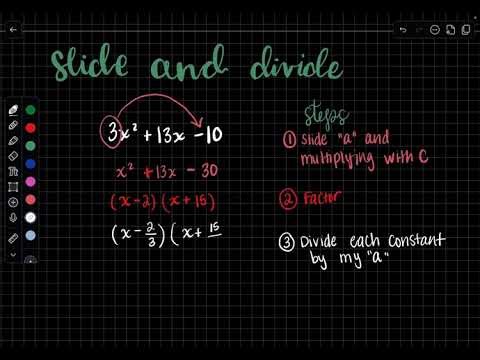 slide and divide
3x² + 13x - 10
x² + 13x - 30
(x - 2) (x + 15)
(x - 2/3) (x + 15/
steps
① Slide "a" and
multiplying with C
② Factor
③ Divide each constant
by my "a"